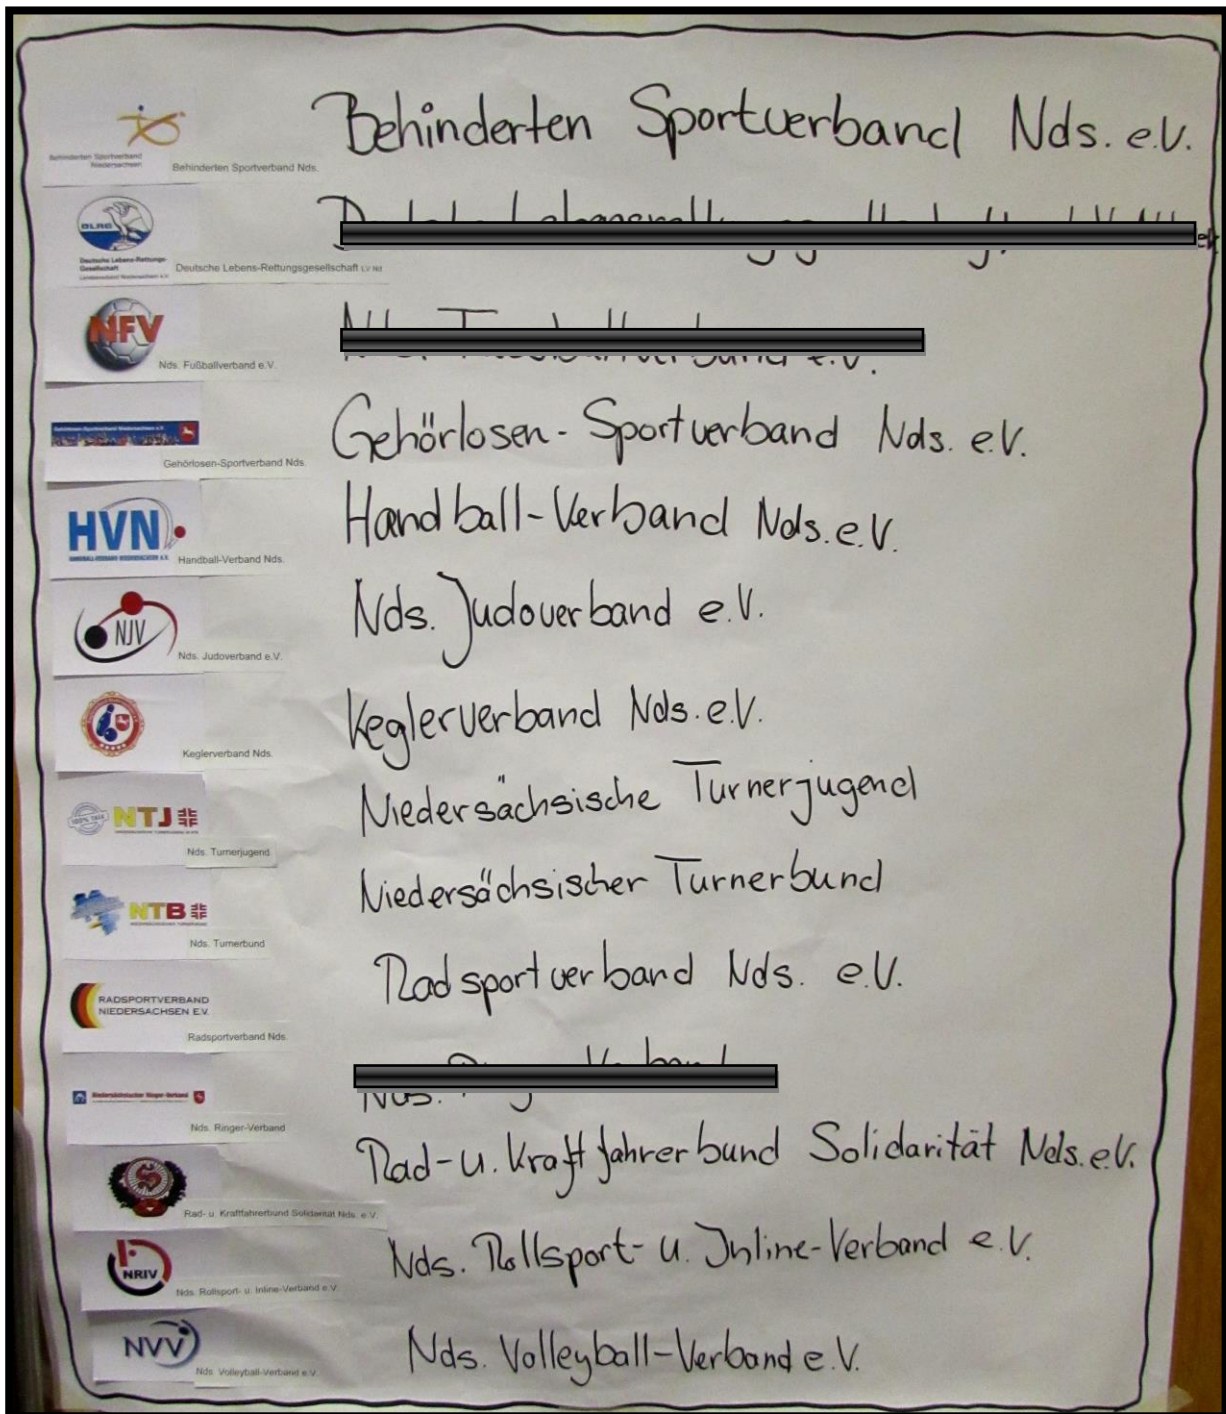 Behinderten Sportverband Nds. e.V.
Behinderten Sportverband
Niedersachsen
Behinderten Sportverband Nds.
DLRG
Deutsche Lebens-Rettungs-
Gesellschaft
Deutsche Lebens-Rettungsgesellschaft
NFV
Nds. Fußballverband e.V.
Gehörlosen-Sportverband Niedersachsen e.V.
Gehörlosen-Sportverband Nds.
Gehörlosen-Sportverband Nds. e.V.
HVN
HANDBALL-VERBAND NIEDERSACHSEN E.V.
Handball-Verband Nds.
Handball-Verband Nds. e.V.
NJV
Nds. Judoverband e.V.
Nds. Judoverband e.V.
Keglerverband Nds.
Keglerverband Nds. e.V.
NTJ
Nds. Turnerjugend
Niedersächsische Turnerjugend
NTB
Nds. Turnerbund
Niedersächsischer Turnerbund
RADSPORTVERBAND
NIEDERSACHSEN E.V.
Radsportverband Nds.
Radsportverband Nds. e.V.
Niedersächsischer Ringer-Verband
Nds. Ringer-Verband
Rad- u. Kraftfahrerbund Solidarität Nds. e.V.
Rad- u. Kraftfahrerbund Solidarität Nds. e.V.
NRIV
Nds. Rollsport- u. Inline-Verband e.V.
Nds. Rollsport- u. Inline-Verband e.V.
NVV
Nds. Volleyball-Verband e.V.
Nds. Volleyball-Verband e.V.